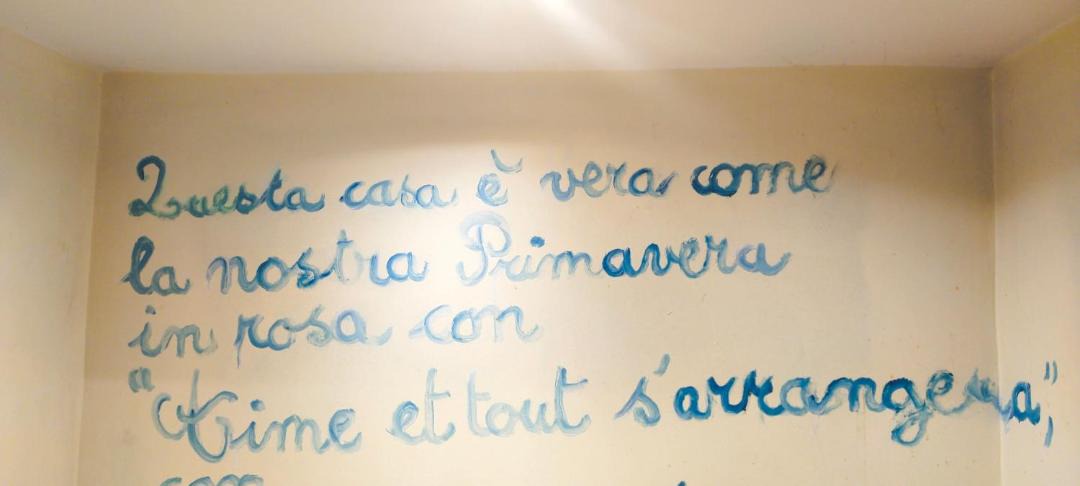 Questa casa è vera come
la nostra Primavera
in rosa con
"Aime et tout s'arrangera",
con